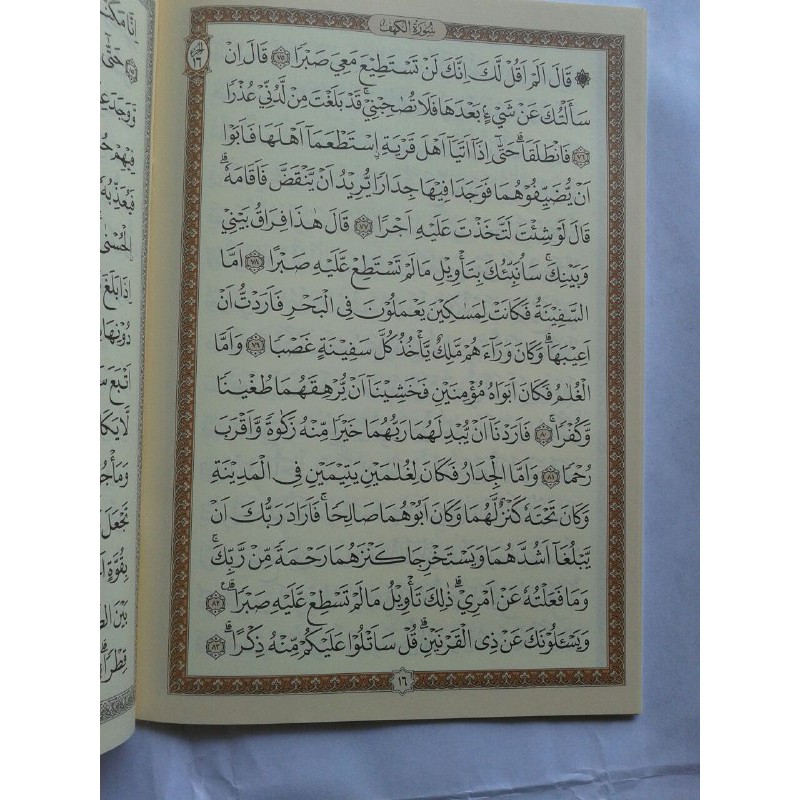 سُورَةُ الْكَهْفِ
الجزء ١٦
۞ قَالَ اَلَمْ اَقُلْ لَّكَ اِنَّكَ لَنْ تَسْتَطِيْعَ مَعِيَ صَبْرًا ٧٥ قَالَ اِنْ
سَاَلْتُكَ عَنْ شَيْءٍۢ بَعْدَهَا فَلَا تُصٰحِبْنِيْۚ قَدْ بَلَغْتَ مِنْ لَّدُنِّيْ عُذْرًا
٧٦ فَانْطَلَقَاۗ حَتّٰىٓ اِذَآ اَتَيَآ اَهْلَ قَرْيَةِ ِۨاسْتَطْعَمَآ اَهْلَهَا فَاَبَوْا
اَنْ يُّضَيِّفُوْهُمَا فَوَجَدَا فِيْهَا جِدَارًا يُّرِيْدُ اَنْ يَّنْقَضَّ فَاَقَامَهٗۗ
قَالَ لَوْ شِئْتَ لَتَّخَذْتَ عَلَيْهِ اَجْرًا ٧٧ قَالَ هٰذَا فِرَاقُ بَيْنِيْ
وَبَيْنِكَۚ سَاُنَبِّئُكَ بِتَأْوِيْلِ مَا لَمْ تَسْتَطِعْ عَّلَيْهِ صَبْرًا ٧٨ اَمَّا
السَّفِيْنَةُ فَكَانَتْ لِمَسٰكِيْنَ يَعْمَلُوْنَ فِى الْبَحْرِ فَاَرَدْتُّ اَنْ
اَعِيْبَهَاۗ وَكَانَ وَرَاۤءَهُمْ مَّلِكٌ يَّأْخُذُ كُلَّ سَفِيْنَةٍ غَصْبًا ٧٩ وَاَمَّا
الْغُلٰمُ فَكَانَ اَبَوَاهُ مُؤْمِنَيْنِ فَخَشِيْنَآ اَنْ يُّرْهِقَهُمَا طُغْيَانًا
وَّكُفْرًاۚ ٨٠ فَاَرَدْنَآ اَنْ يُّبْدِلَهُمَا رَبُّهُمَا خَيْرًا مِّنْهُ زَكٰوةً وَّاَقْرَبَ
رُحْمًا ٨١ وَاَمَّا الْجِدَارُ فَكَانَ لِغُلٰمَيْنِ يَتِيْمَيْنِ فِى الْمَدِيْنَةِ
وَكَانَ تَحْتَهٗ كَنْزٌ لَّهُمَا وَكَانَ اَبُوْهُمَا صَالِحًاۚ فَاَرَادَ رَبُّكَ اَنْ
يَّبْلُغَآ اَشُدَّهُمَا وَيَسْتَخْرِجَا كَنْزَهُمَا رَحْمَةً مِّنْ رَّبِّكَۚ
وَمَا فَعَلْتُهٗ عَنْ اَمْرِيْۗ ذٰلِكَ تَأْوِيْلُ مَا لَمْ تَسْطِعْ عَّلَيْهِ صَبْرًاۗ ٨٢
وَيَسْـَٔلُوْنَكَ عَنْ ذِى الْقَرْنَيْنِۗ قُلْ سَاَتْلُوْا عَلَيْكُمْ مِّنْهُ ذِكْرًاۗ ٨٣
١٦